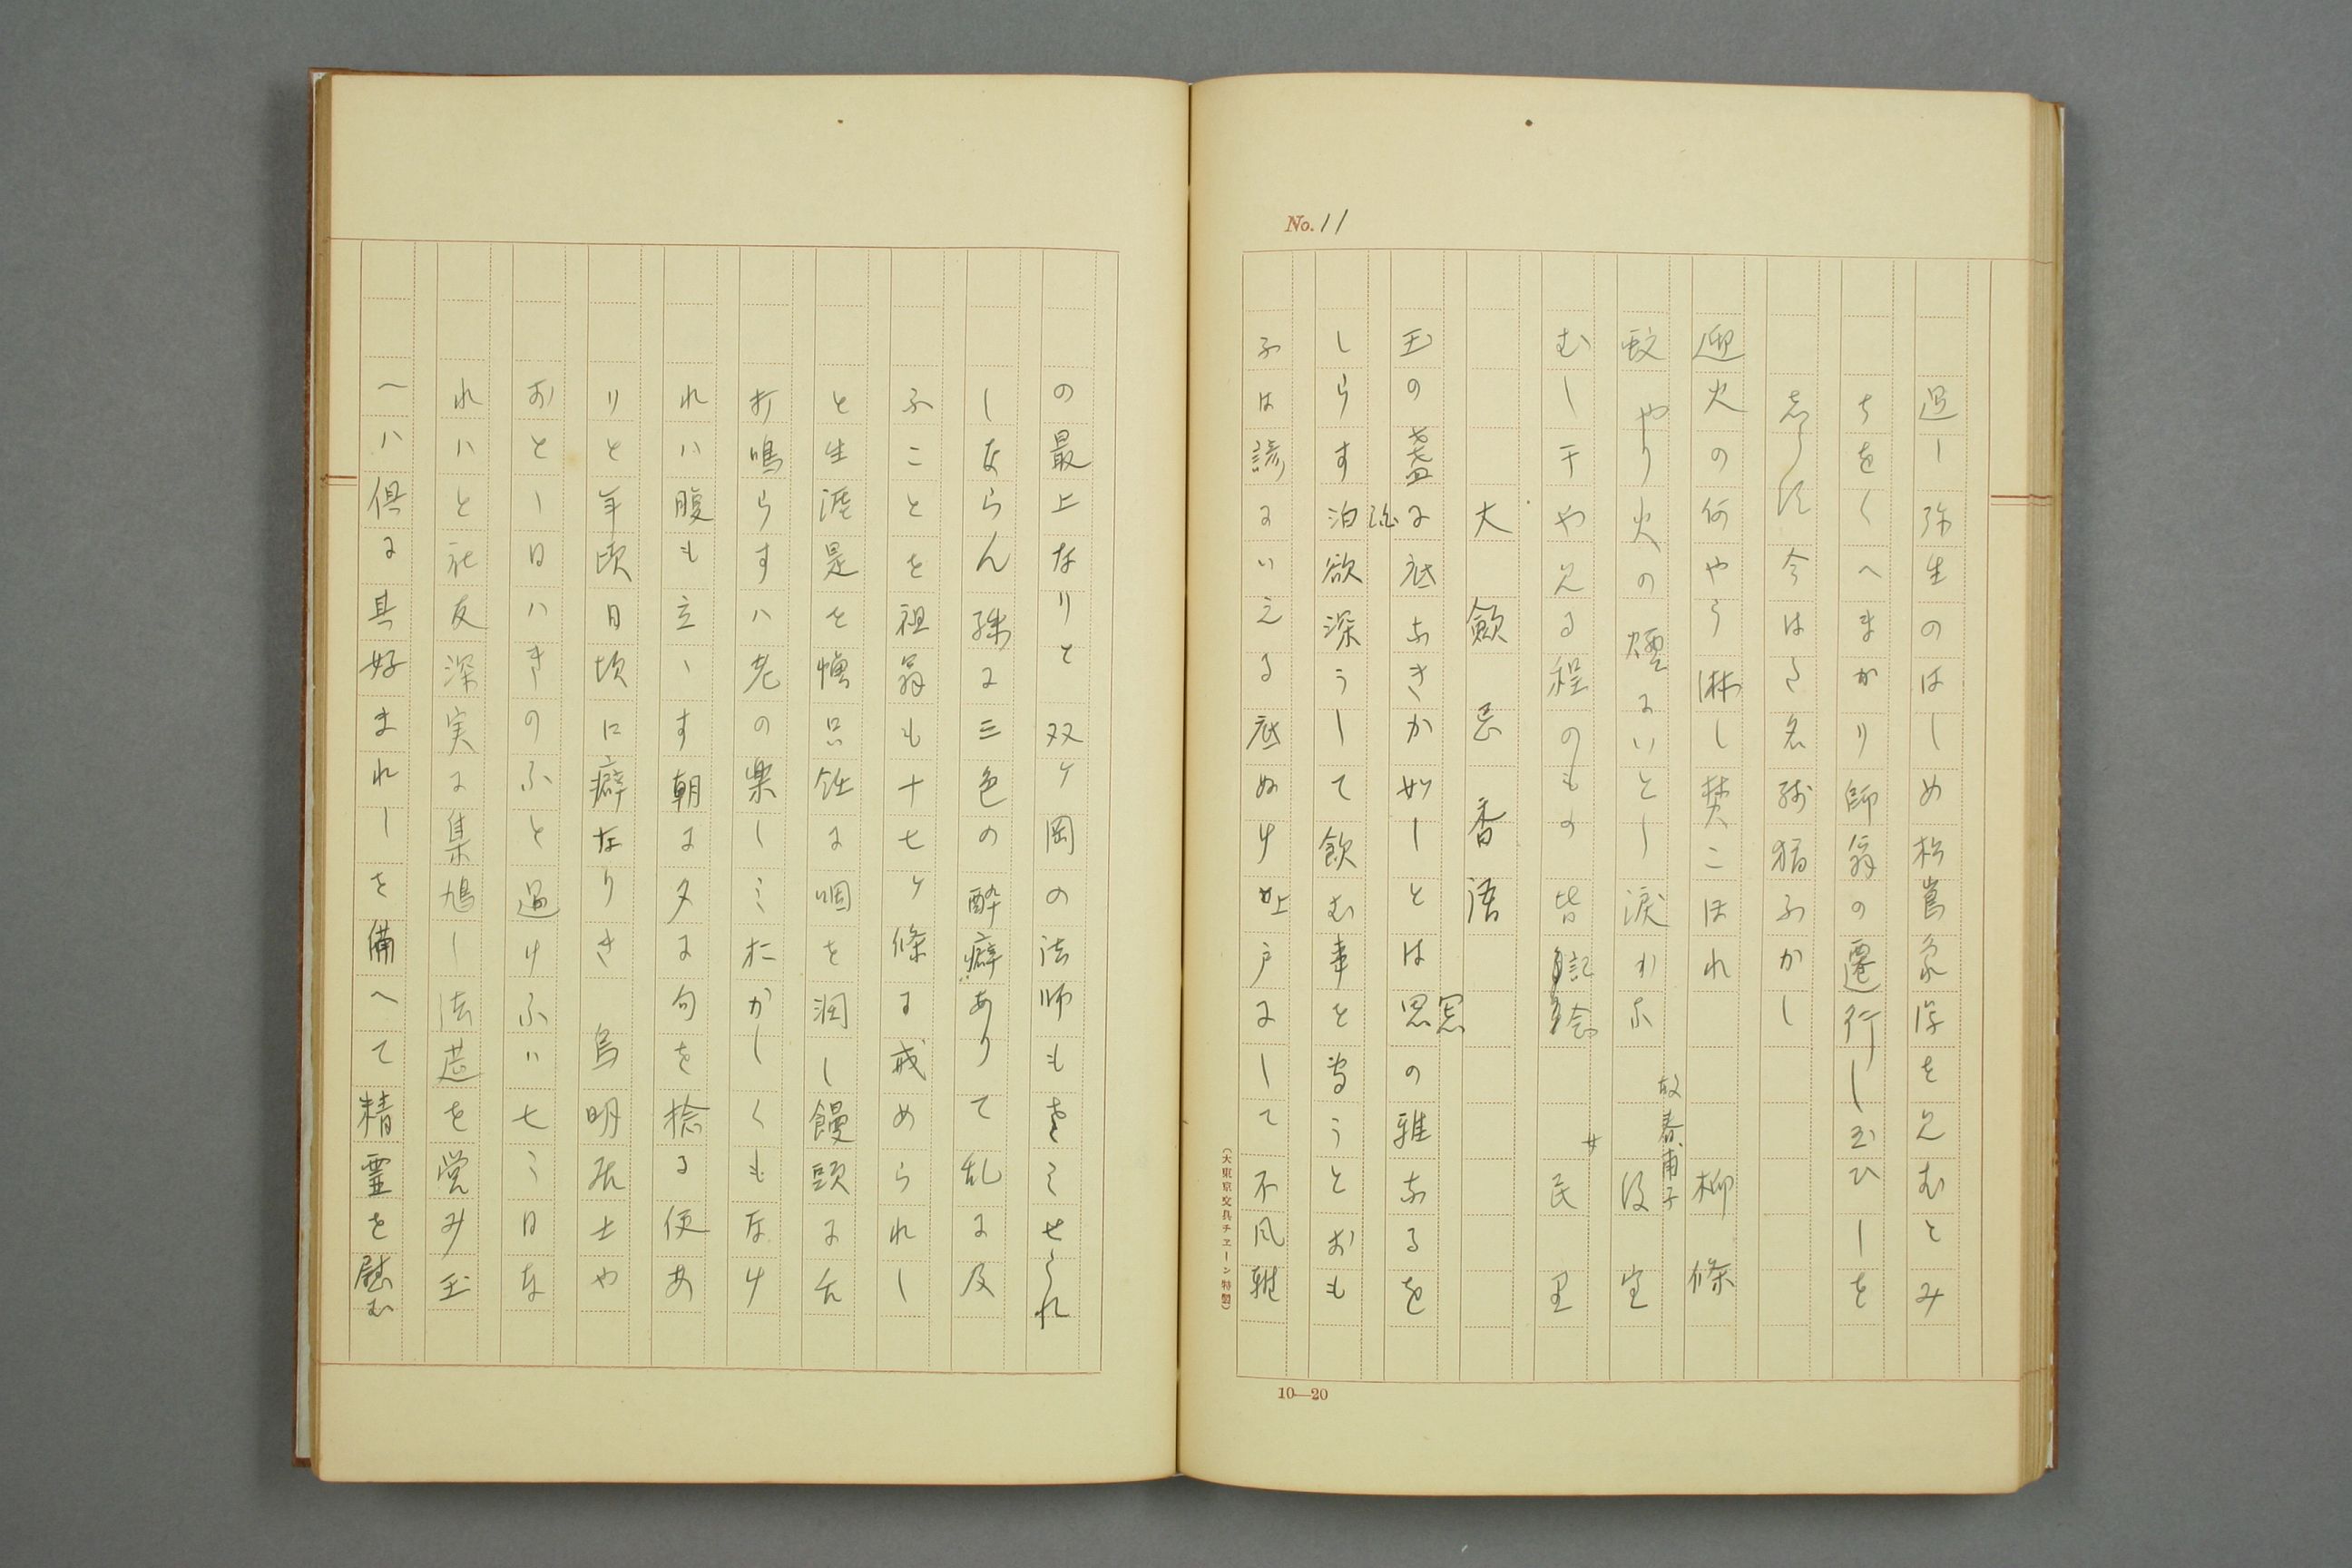 No. 11
過し弥生のはしめ松嶌象潟を見むとみ
ちをくへまかり師翁の遷行し玉ひしを
しらは今はさ名残猶ふかし
迎火の何やら淋し焚こほれ 柳條
蚊やり火の煙にいとし涙かな 故春甫子 後室
むし干や見る程のもの皆記念 女 民里
大飲忌香語
玉の盞に底なきか如しとは思の雅なるを
しらす泊欲深うして飲む事を当うとおも
ふは諺にいえる底ぬけ上戸にして不風雅
の最上なりと 双ケ岡の法師もさミせられ
しならん 殊に三色の酔癖ありて乱に及
ふことを祖翁も十七ケ條に戒められし
と生涯是を慎只飴に咽を潤し饅頭に舌
打鳴らすハ老の楽しミにかしくもなけ
れハ腹も立ゝす朝に夕に句を捻る便あ
りと年頃日頃に癖なりき 烏明居士や
おとゝ日ハきのふと過けふハ七ミ日な
れハと社友深実に集鳩し法莚を営み玉
へハ倶に其好まれしを備へて精霊を慰む
10—20
(大東京文具チエーン特製)